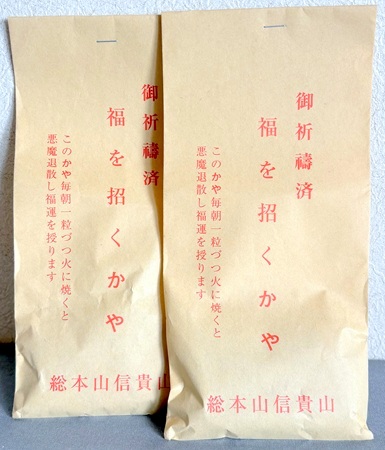 御祈禱済
福を招くかや
このかや毎朝一粒づつ火に焼くと
悪魔退散し福運を授ります
総本山信貴山
御祈禱済
福を招くかや
このかや毎朝一粒づつ火に焼くと
悪魔退散し福運を授ります
総本山信貴山